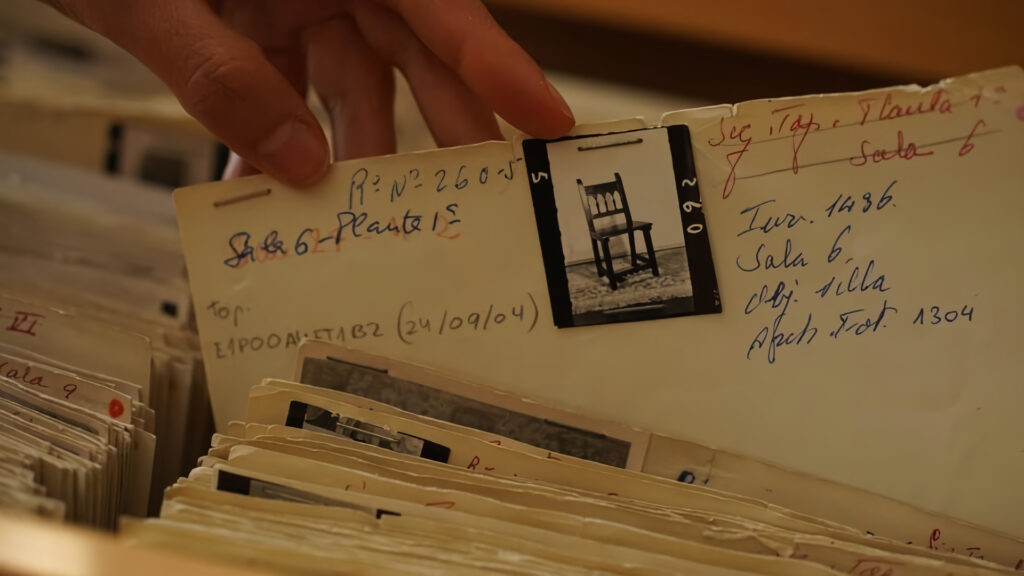 Rº Nº 260-5
Sala 6 - Planta 1ª
Top.
(24/09/04)
5
092
Planta 1ª
Sala 6
Inv. 1486.
Sala 6.
Obj. silla
Arch. Fot. 1304
VI
Sala 9